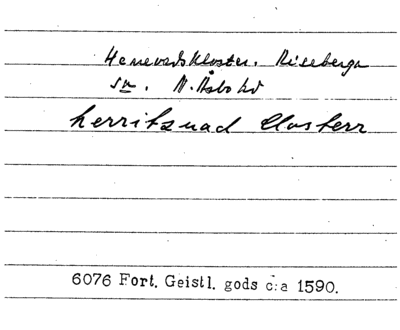 Herrevadskloster. Riseberga
sn. N. Åsbo hd
herritzuad Closterr
6076 Fort. Geistl. gods c:a 1590.